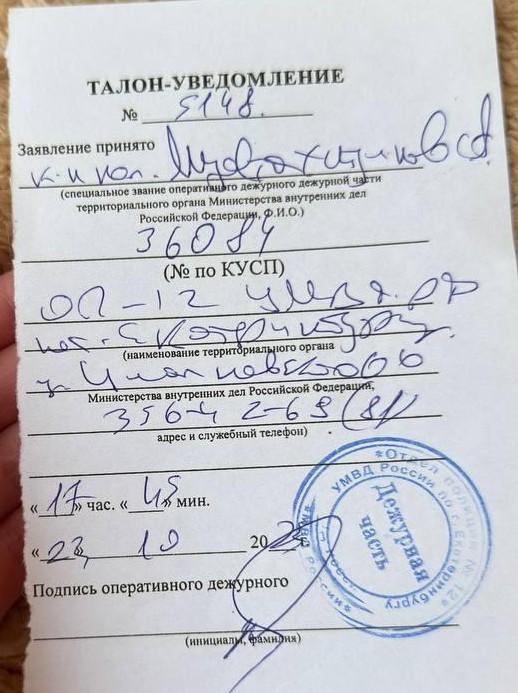 ТАЛОН-УВЕДОМЛЕНИЕ
№ 5148.
Заявление принято
(специальное звание оперативного дежурного дежурной части
территориального органа Министерства внутренних дел
Российской Федерации, Ф.И.О.)
36084
(№ по КУСП)
ОП-12 УМВД РФ
по г. Екатеринбургу
(наименование территориального органа
ул.
Министерства внутренних дел Российской Федерации,
адрес и служебный телефон)
«17» час. «45» мин.
«23» 10 20
Подпись оперативного дежурного
(инициалы, фамилия)
*Отдел полиции № 12*
УМВД России по г. Екатеринбургу
Дежурная
часть